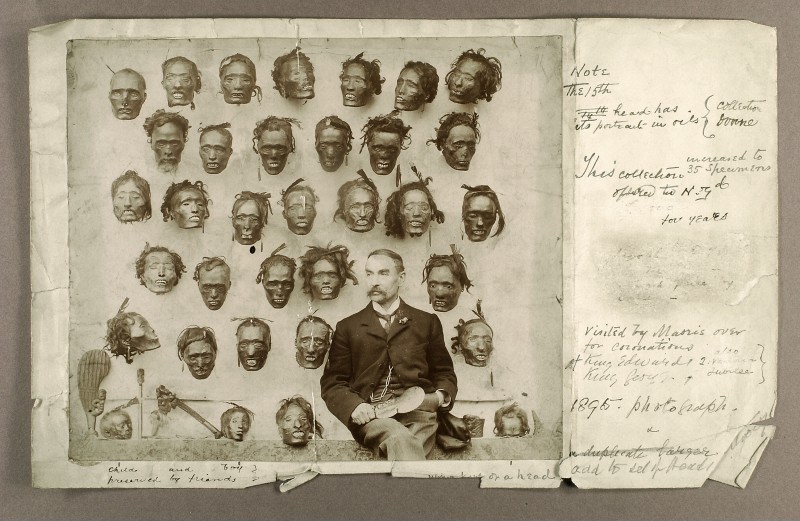 Note
The 15th
14th head has
its portrait in oils
Collection
Donne
This collection increased to
35 Specimens
offered to N.Z.d
for years
Visited by Maoris over
for coronations
of King Edward &
King George.
also
Jubilee
1895. photograph.
a duplicate larger
and to set of Heads
child and boy
preserved by friends
of a head